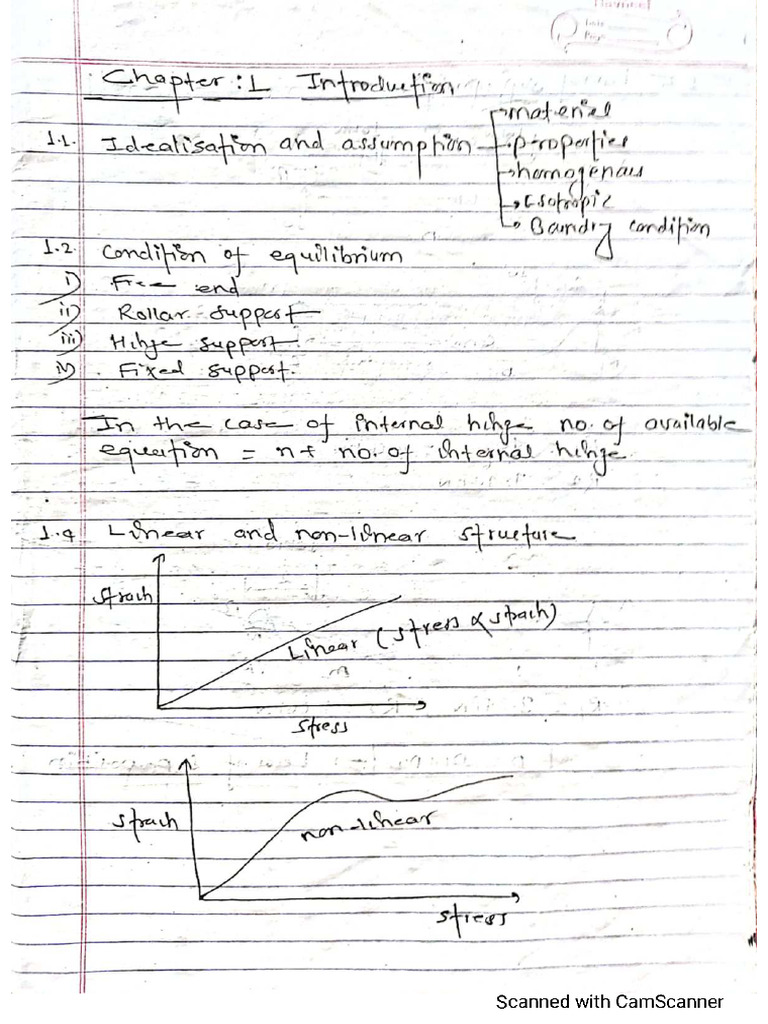 Chapter: 1 Introduction
1.1. Idealisation and assumption
→ material
→ properties
→ homogenous
→ Isotropic
→ Boundry condition
1.2. Condition of equilibrium
i) Free end
ii) Rollar support
iii) Hinge support.
iv) Fixed support.
In the case of internal hinge no. of available
equation = n + no. of internal hinge.
1.4 Linear and non-linear structure
Strain
Linear (stress ∝ strain)
Stress
Strain
non-linear
stress
Scanned with CamScanner